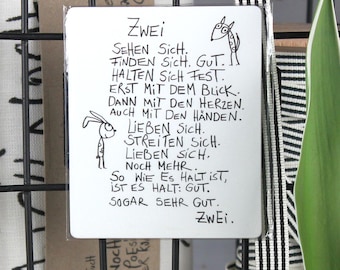 Zwei
SEHEN SICH.
FINDEN SICH. GUT.
HALTEN SICH FEST.
ERST MIT DEM BLICK.
DANN MIT DEN HERZEN.
AUCH MIT DEN HÄNDEN.
LIEBEN SICH.
STREITEN SICH.
LIEBEN SICH.
NOCH MEHR.
SO WIE ES HALT IST,
IST ES HALT: GUT.
SOGAR SEHR GUT.
ZWEI.